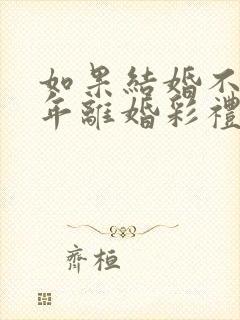 如果結婚不
年離婚彩禮
齊桓